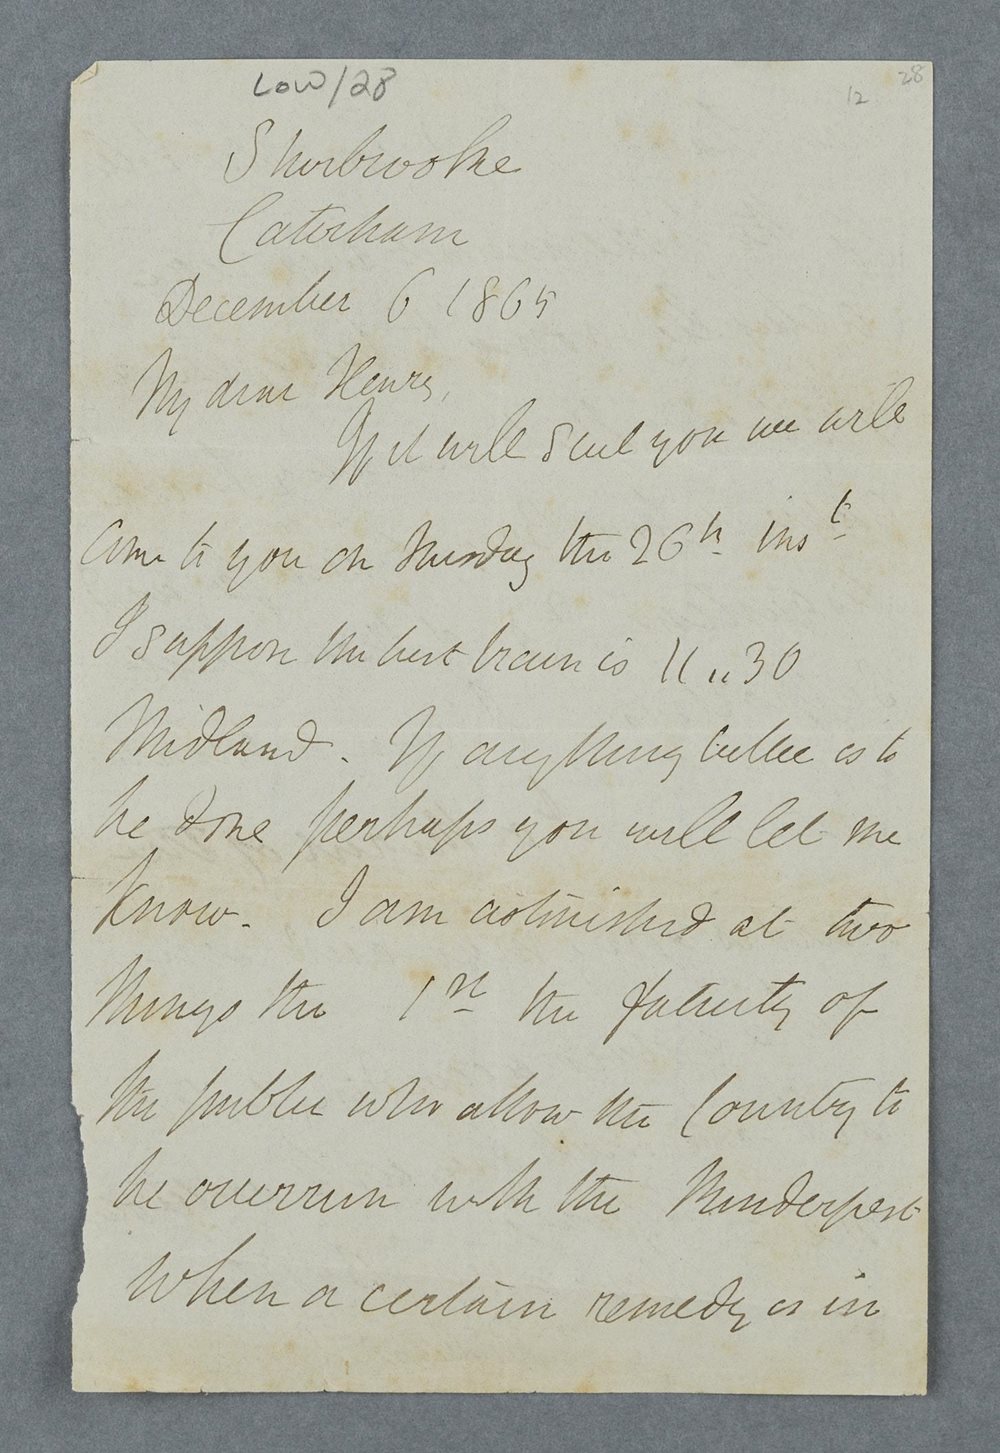 LOW/28
12 28
Sherbrooke
Caterham
December 6 1865
My dear Henry,
If it will suit you we will
come to you on Tuesday the 26th inst
I suppose the best train is 11 " 30
Midland. If anything better is to
be done perhaps you will let me
know. I am astonished at two
things the 1st the fatuity of
the public who allow the Country to
be overrun with the Rinderpest
when a certain remedy is in